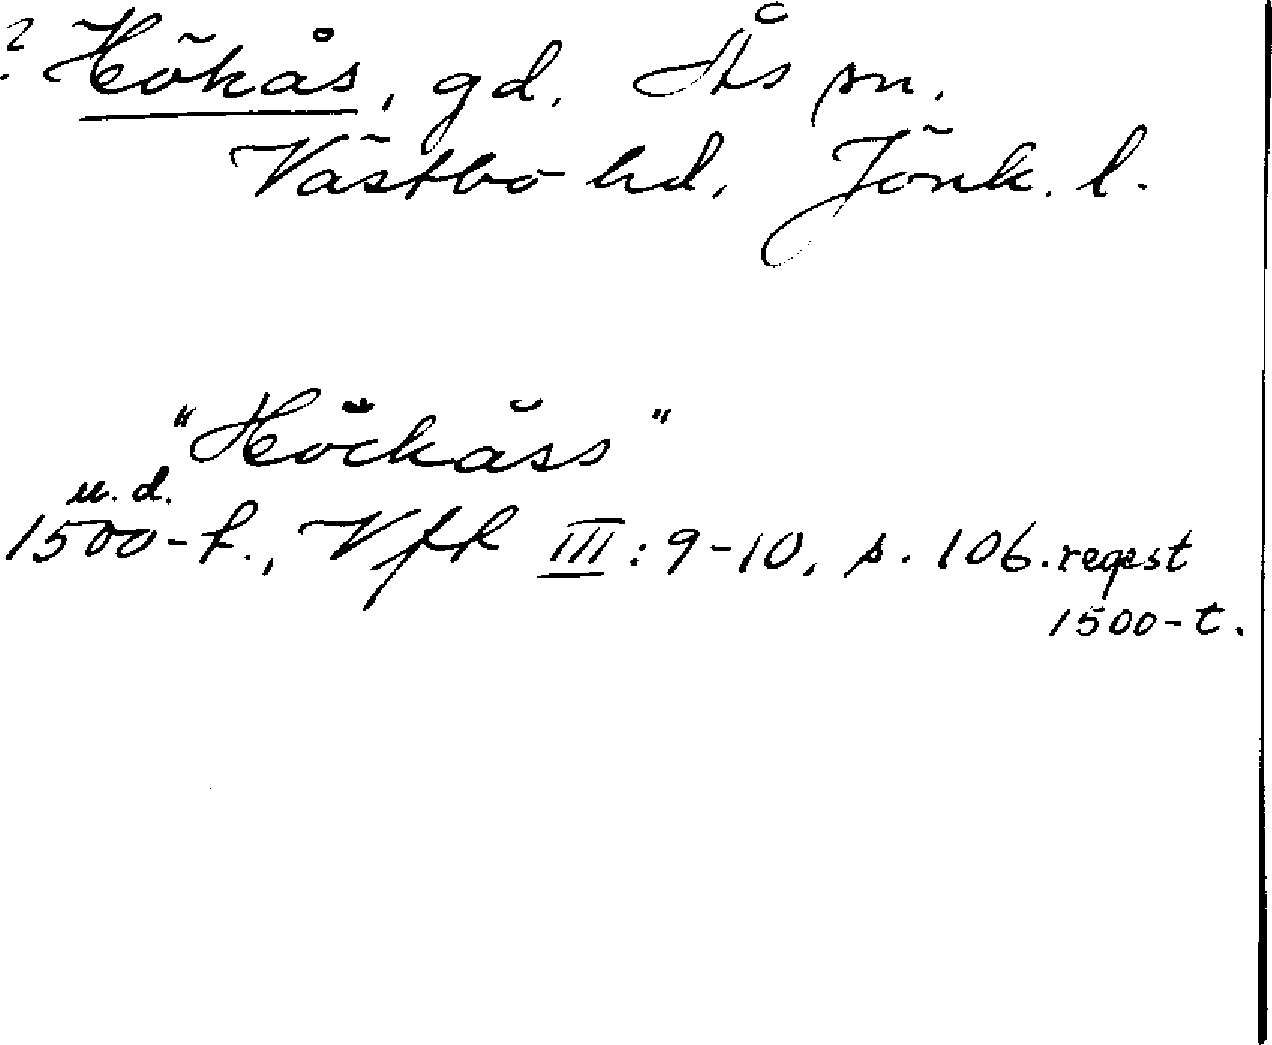 ? Hökås, gd. Ås sn.
Västbo hd. Jönk. l.
"Höckåss"
u.d.
1500-t., Vfk III: 9-10, s. 106. regest
1500-t.